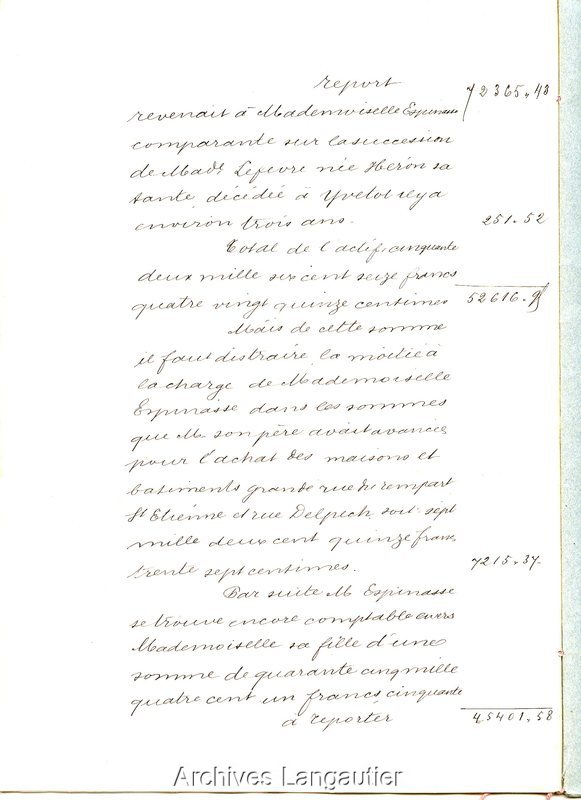 report 72365.43
revenait à Mademoiselle Espinasse
comparante sur la succession
de Made Lefevre née Héron sa
tante, décédée à Yvetot il y a
environ trois ans. 251.52
Total de l'actif, cinquante
deux mille six cent seize francs
quatre vingt quinze centimes 52616.95
Mais de cette somme
il faut distraire la moitié à
la charge de Mademoiselle
Espinasse dans les sommes
que M. son père avait avancées
pour l'achat des maisons et
batiments grande rue du rempart
St Etienne et rue Delpech, soit sept
mille deux cent quinze francs
trente sept centimes. 7215.37.
Par suite M. Espinasse
se trouve encore comptable envers
Mademoiselle sa fille d'une
somme de quarante cinq mille
quatre cent un francs cinquante
à reporter 45401.58
Archives Langautier